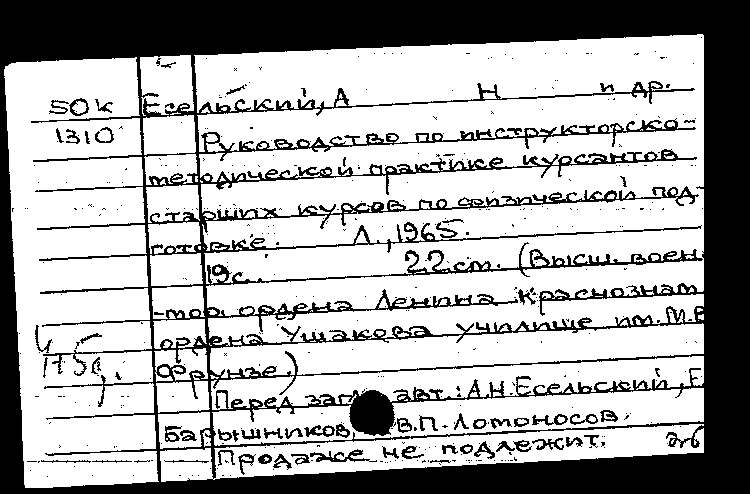 50К Есельский, А Н и др.
1310 Руководство по инструкторско-
методической практике курсантов
старших курсов по физической под-
готовке. Л., 1965.
19с. 22см. (Высш. воен
-мор. ордена Ленина Краснознам
ордена Ушакова училище им. М.В
Фрунзе.)
Перед загл. авт.: А.Н. Есельский, Е.
Барышников, В.П. Ломоносов.
Продаже не подлежит.